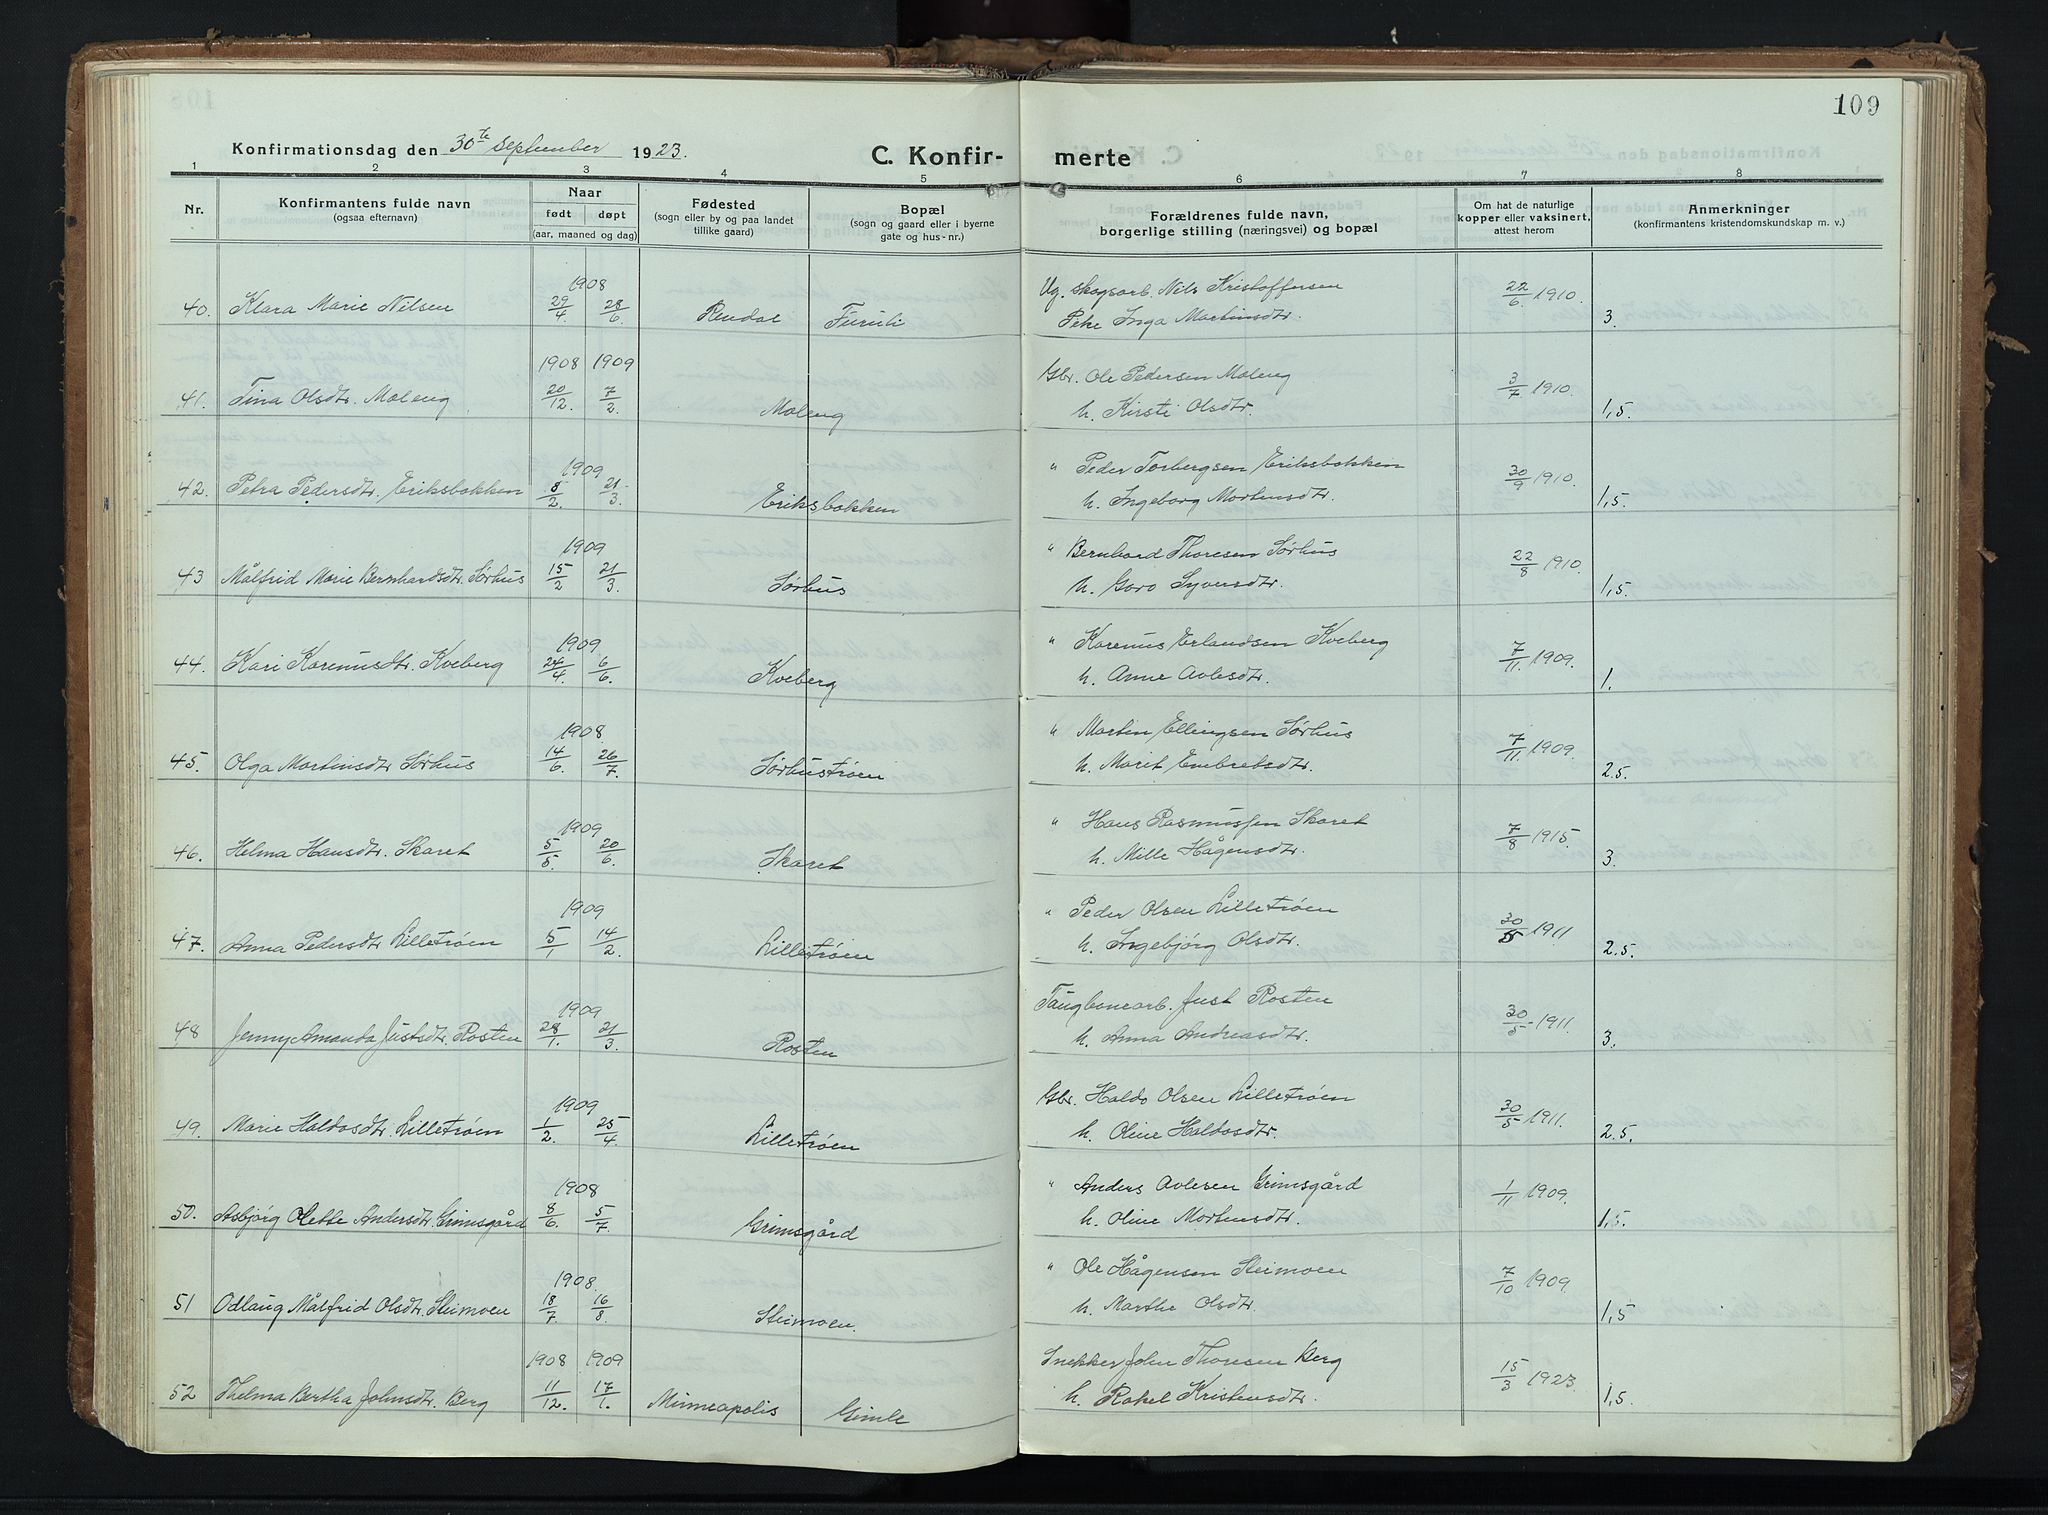 109
Konfirmationsdag den 30te September 1923.
C. Konfirmerte
1 2 3 4 5 6 7 8
Nr.
Konfirmantens fulde navn
(ogsaa efternavn)
Naar
født døpt
(aar, maaned og dag)
Fødested
(sogn eller by og paa landet
tillike gaard)
Bopæl
(sogn og gaard eller i byerne
gate og hus-nr.)
Forældrenes fulde navn,
borgerlige stilling (næringsvei) og bopæl
Om hat de naturlige
kopper eller vaksinert,
attest herom
Anmerkninger
(konfirmantens kristendomskundskap m. v.)
1908
40. Klara Marie Nilsen 29/4. 28/6. Rendal Furuli Ug. skogsarb. Nils Kristoffersen 22/6. 1910. 3.
Pike Inga Martinsdtr.
1908 1909
41. Tina Olsdtr. Moleng 20/12. 7/2. Moleng Gbr. Ole Pedersen Moleng 3/7 1910. 1,5.
h. Kirsti Olsdtr.
1909
42. Petra Pedersdtr. Eriksbakken 8/2. 21/3. Eriksbakken " Peder Torbergsen Eriksbakken 30/9 1910. 1,5.
h. Ingeborg Mortensdtr.
1909
43 Målfrid Marie Bernhardsdtr. Sørhus 15/2 21/3. Sørhus " Bernhard Thoresen Sørhus 22/8 1910. 1,5.
h. Goro Syversdtr.
1909
44. Kari Karenusdtr. Kveberg 24/4. 6/6. Kveberg " Karenus Erlandsen Kveberg 7/11. 1909. 1.
h. Anne Avlesdtr.
1908.
45. Olga Martinsdtr Sørhus 14/6. 26/7. Sørhustrøen " Martin Ellingsen Sørhus 7/11. 1909. 2.5.
h. Marit Embretsdtr.
1909
46. Helma Hansdtr. Skaret 5/5. 20/6. Skaret " Hans Rasmussen Skaret 7/8 1915. 3.
h. Mille Hågensdtr.
1909
47. Anna Pedersdtr Lilletrøen 5/1 14/2. Lilletrøen " Peder Olsen Lilletrøen 30/5 1911 2.5.
h. Ingebjørg Olsdtr.
1909
48 Jenny Amanda Justsdtr. Rosten 28/1. 21/3. Rosten Taugbanearb. Just Rosten 30/5 1911. 3.
h. Anna Andreasdtr.
1909
49. Marie Haldosdtr. Lilletrøen 1/2. 25/4. Lilletrøen Gbr. Haldo Olsen Lilletrøen 30/5 1911. 2.5.
h. Oline Haldosdtr.
1908
50. Asbjørg Olette Andersdtr. Grimsgård 8/6. 5/7. Grimsgård " Anders Avlesen Grimsgård 1/11 1909. 1,5.
h. Oline Mortensdtr.
1908.
51 Odlaug Målfrid Olsdtr. Steimoen 18/7. 16/8. Steimoen. " Ole Hågensen Steimoen 7/10 1909. 1,5
h. Marthe Olsdtr.
1908 1909
52 Thelma Bertha Johnsdtr. Berg 11/12. 17/1. Minneapolis Gimle Snekker John Thoresen Berg 15/3 1923. 1,5.
h. Rakel Kristensdtr.